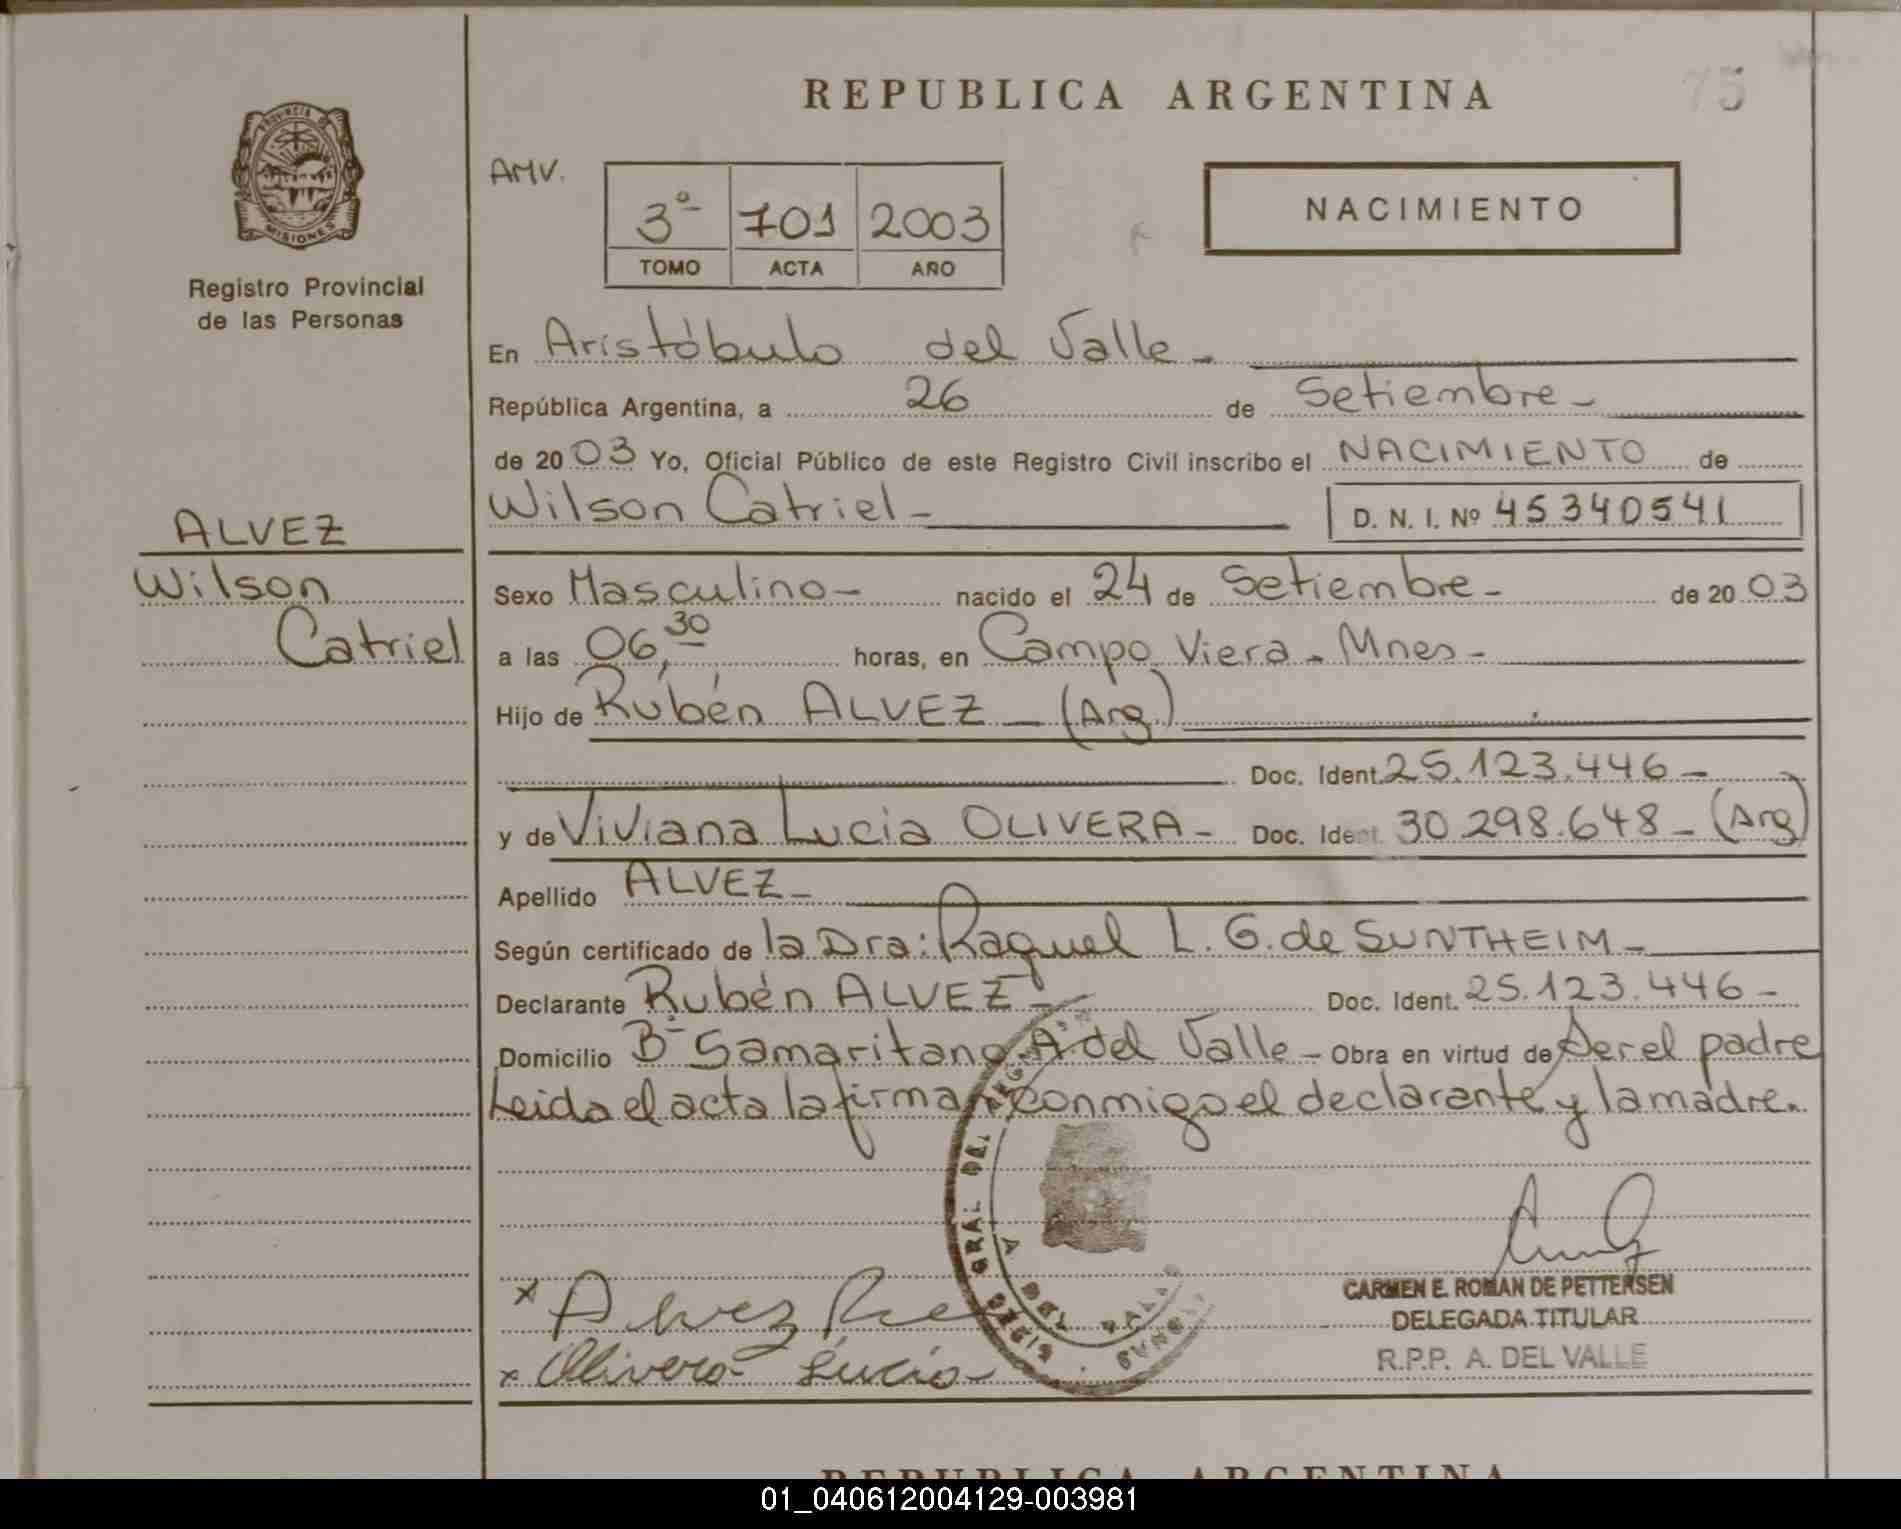 REPUBLICA ARGENTINA
75
PROVINCIA DE
MISIONES
Registro Provincial
de las Personas
AMV.
3º 701 2003
TOMO ACTA AÑO
NACIMIENTO
En Aristóbulo del Valle -
República Argentina, a 26 de Setiembre -
de 2003 Yo, Oficial Público de este Registro Civil inscribo el NACIMIENTO de
Wilson Catriel - D. N. I. Nº 45340541
ALVEZ
Wilson
Catriel
Sexo Masculino - nacido el 24 de Setiembre - de 2003
a las 06,30 horas, en Campo Viera - Mnes -
Hijo de Rubén ALVEZ - (Arg.)
Doc. Ident. 25.123.446 -
y de Viviana Lucia OLIVERA - Doc. Ident. 30.298.648 - (Arg)
Apellido ALVEZ -
Según certificado de la Dra: Raquel L. G. de SUNTHEIM -
Declarante Rubén ALVEZ - Doc. Ident. 25.123.446 -
Domicilio Bº Samaritano A. del Valle - Obra en virtud de ser el padre
Leida el acta la firman conmigo el declarante y la madre.
x Alvez
x Olivera Lucia
CARMEN E. ROMAN DE PETTERSEN
DELEGADA TITULAR
R.P.P. A. DEL VALLE
REPUBLICA ARGENTINA
01_040612004129-003981